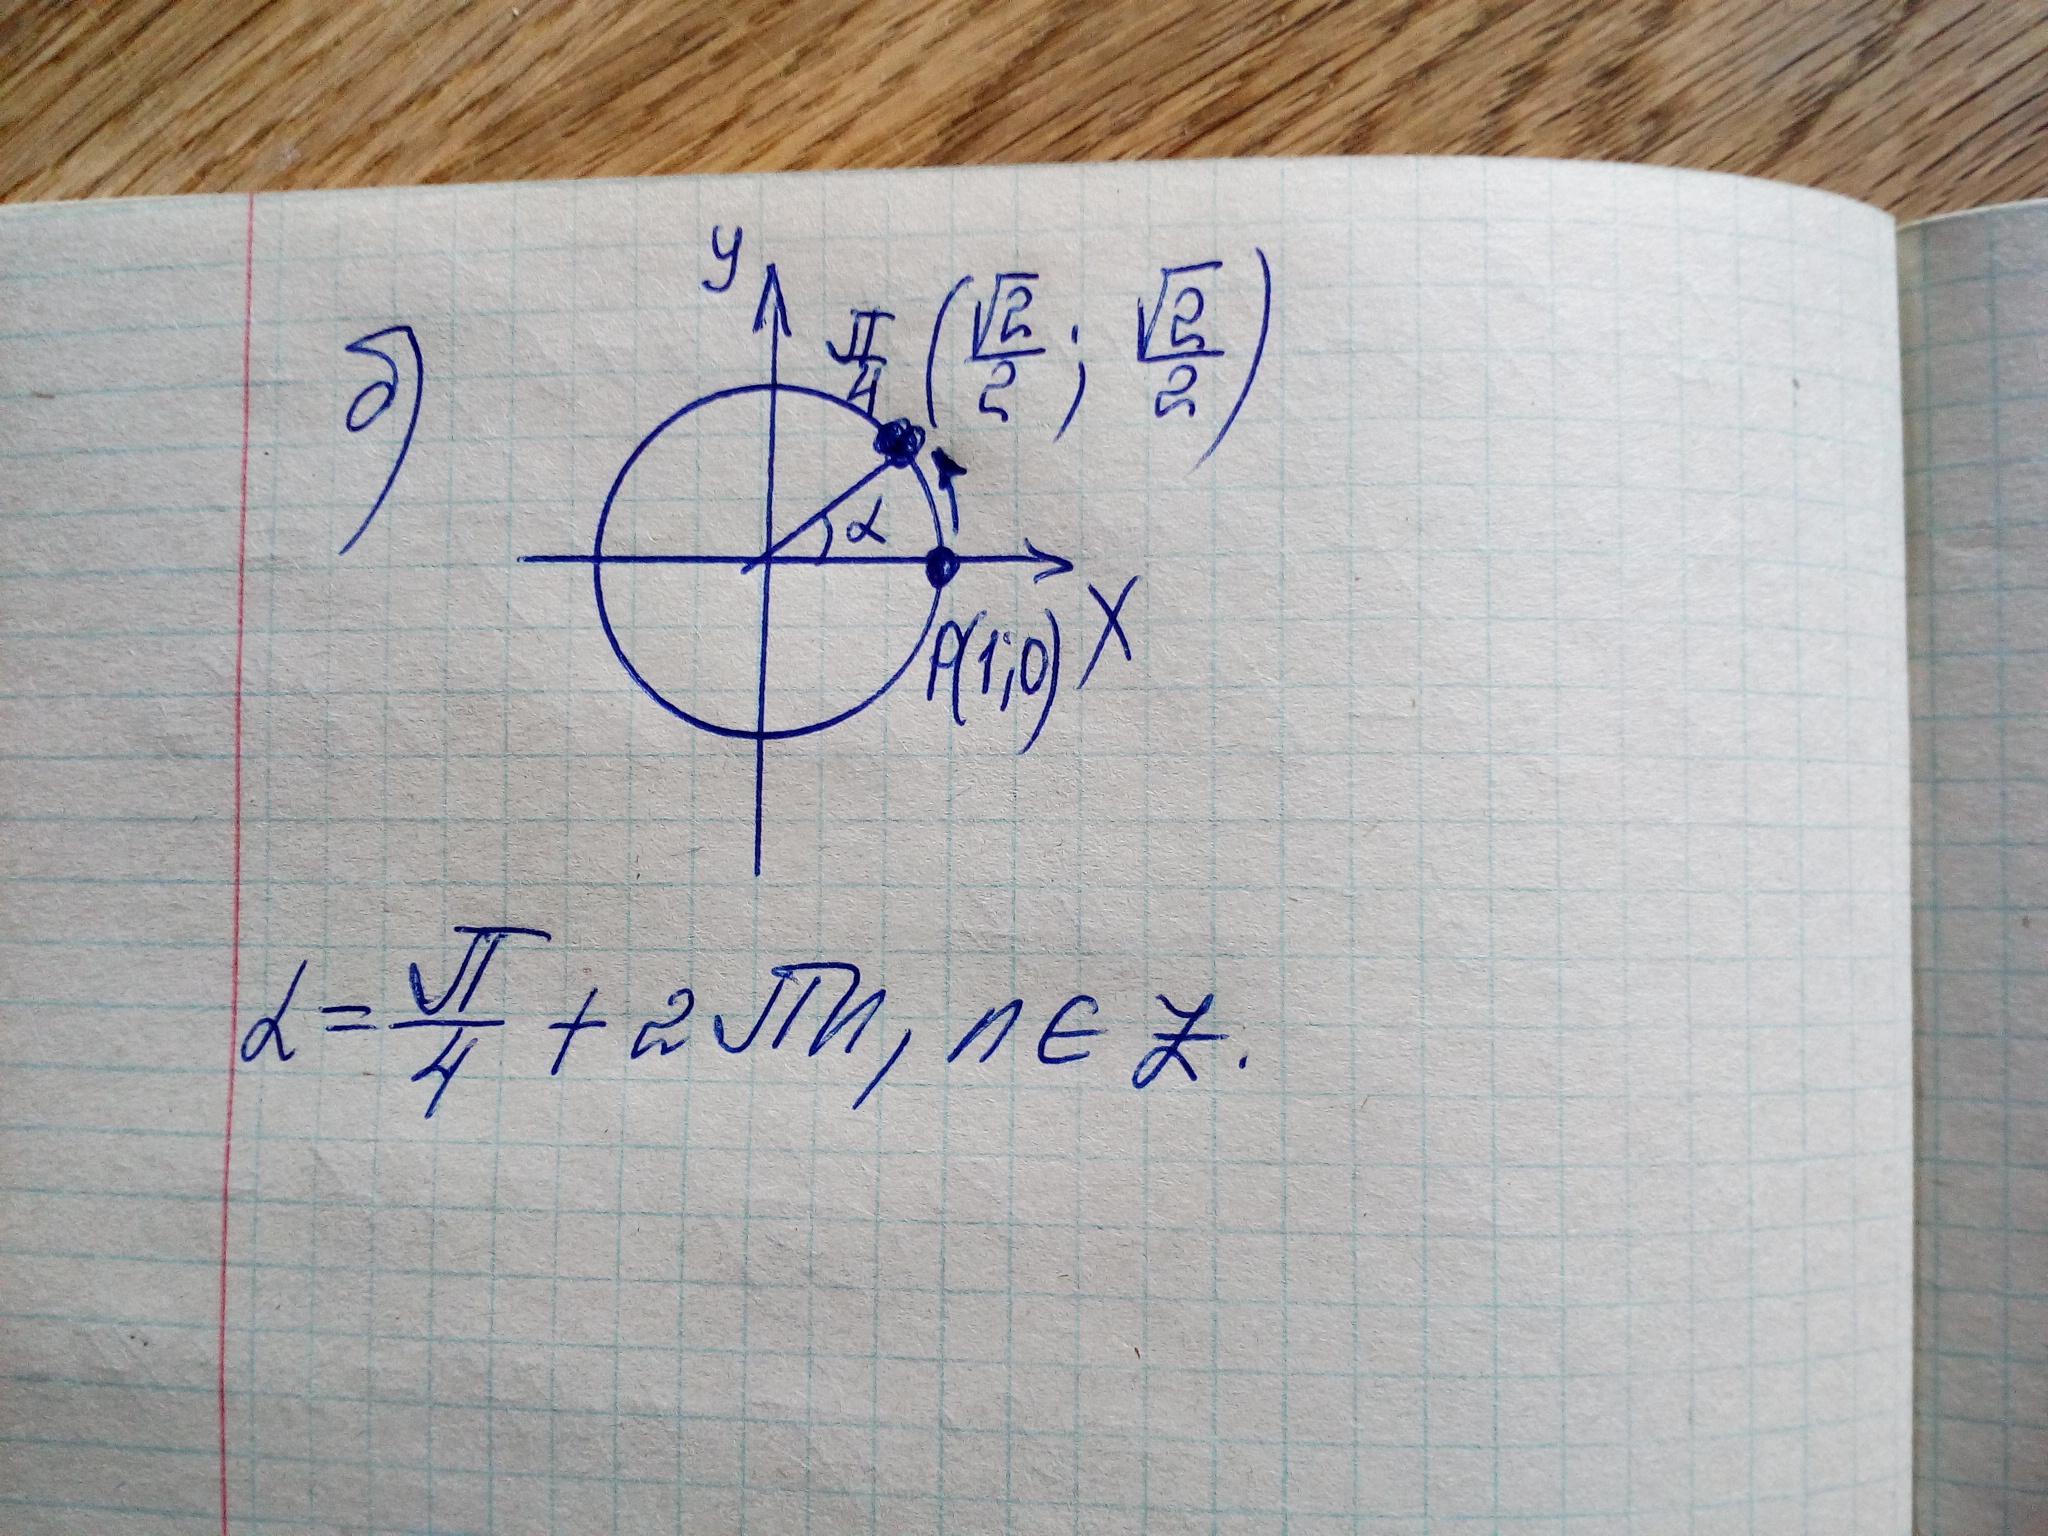 б)
y
π/4 (√2/2; √2/2)
α
P(1;0) X
α = π/4 + 2πn, n ∈ Z.